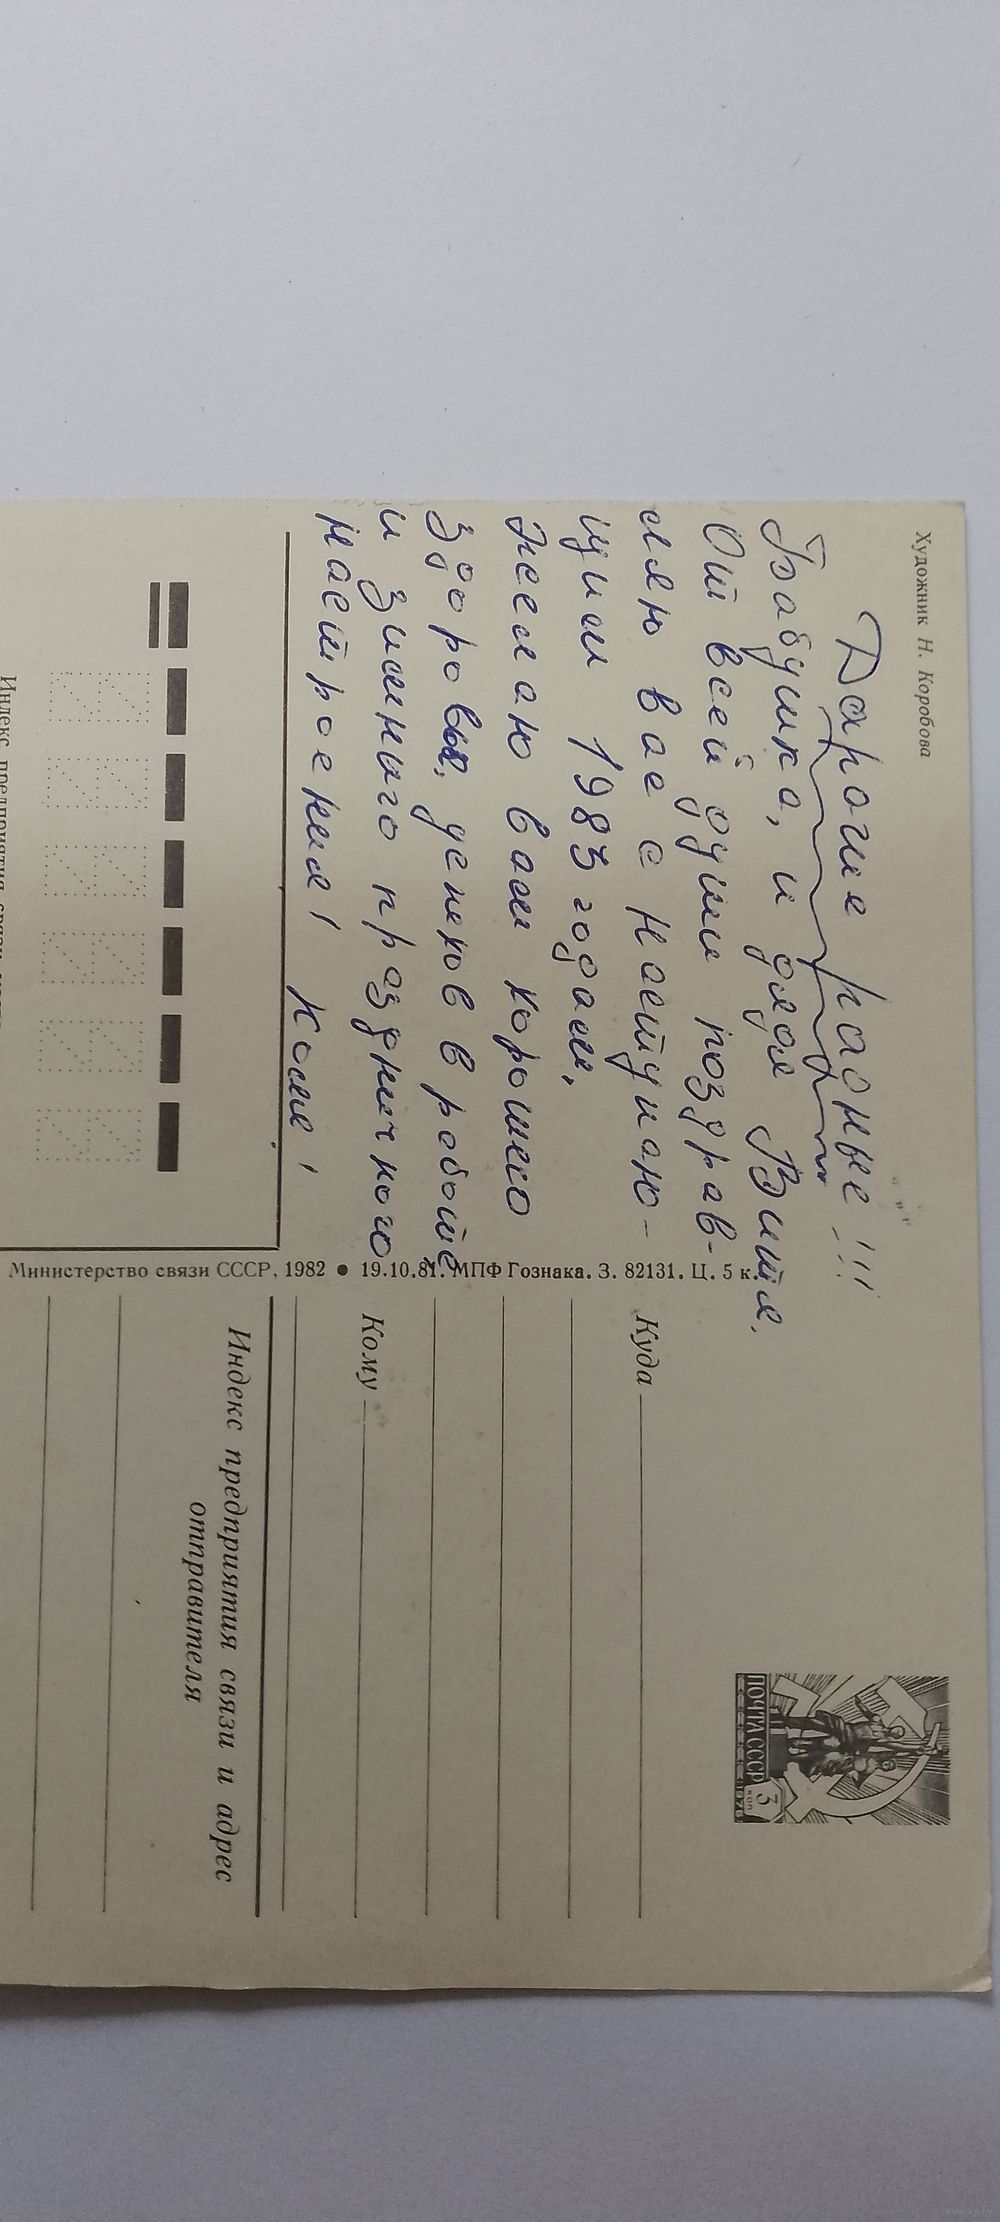 Художник Н. Коробова
Дарогие радные!!!
Бабушка, и дядя Витя.
От всей души поздрав-
ляю вас с Наступаю-
щим 1983 годам,
Желаю вам хорошего
Здоровья, успехов в работе
и Зимнего праздничного
настроения! Коля!
Министерство связи СССР, 1982 ● 19.10.81. МПФ Гознака. З. 82131. Ц. 5 к.
ПОЧТА СССР
3
коп
Куда
Кому
Индекс предприятия связи и адрес
отправителя